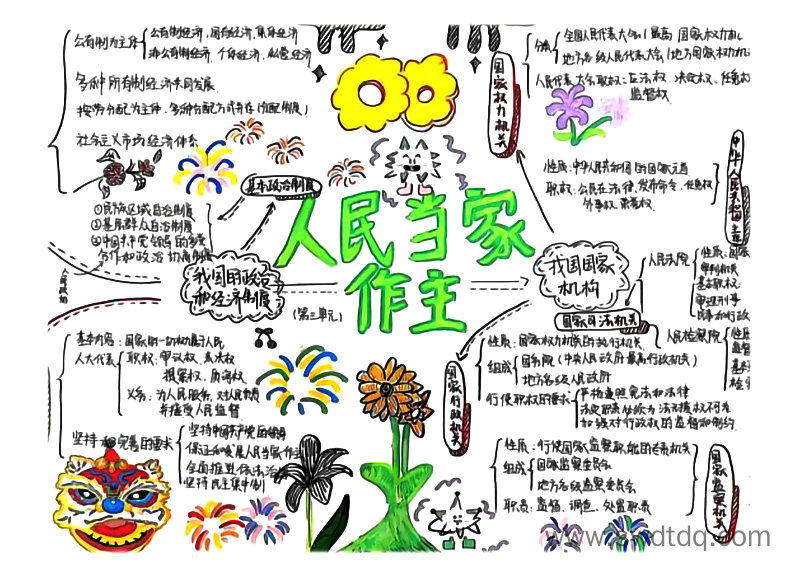 公有制为主体
公有制经济：国有经济、集体经济
非公有制经济：个体经济、私营经济
多种所有制经济共同发展
按劳分配为主体，多种分配方式并存(分配制度)
社会主义市场经济体系
基本政治制度
①民族区域自治制度
②基层群众自治制度
③中国共产党领导的多党
合作和政治协商制度
我国的政治
和经济制度
基本内容：国家的一切权力属于人民
人大代表
职权：审议权、表决权
提案权、质询权
义务：为人民服务，对人民负责
并接受人民监督
坚持和完善的要求
坚持中国共产党的领导
保证和发展人民当家作主
全面推进依法治国
坚持民主集中制
人民当家
作主
(第三单元)
国家权力机关
分类
全国人民代表大会(最高)国家权力机
地方各级人民代表大会(地方国家权力机
人民代表大会职权：立法权、决定权、任免权
监督权
中华人民共和国主席
性质：中华人民共和国的国家元首
职权：公民在法律，发布命令，任免权
外事权、荣典权
我国国家
机构
国家司法机关
人民法院
性质：国家
审判机关
基本职权：
审理刑事
民事和行政
人民检察院
国家行政机关
性质：国家权力机关的执行机关
组成
国务院(中央人民政府 最高行政机关)
地方各级人民政府
行使职权的要求
严格遵照宪法和法律
法定职责必须为 法无授权不可为
加强对行政权的监督和制约
国家监察机关
性质：行使国家监察职能的专责机关
组成
国家监察委员会
地方各级监察委员会
职责：监督、调查、处置职责